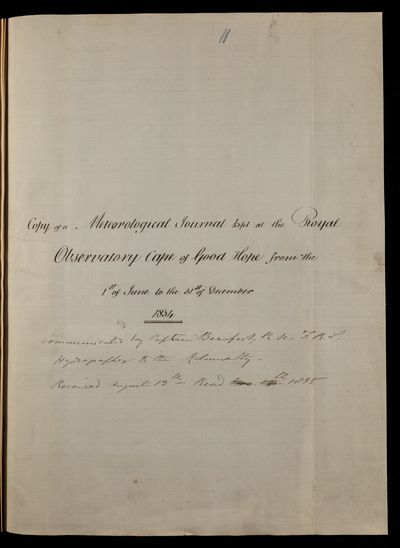 11
Copy of a Meteorological Journal kept at the Royal
Observatory Cape of Good Hope from the
1st of June to the 31st of December
1834
Communicated by Captain Beaufort, R.N. F.R.S.
Hydrographer to the Admiralty –
Received August 13th – Read 1835